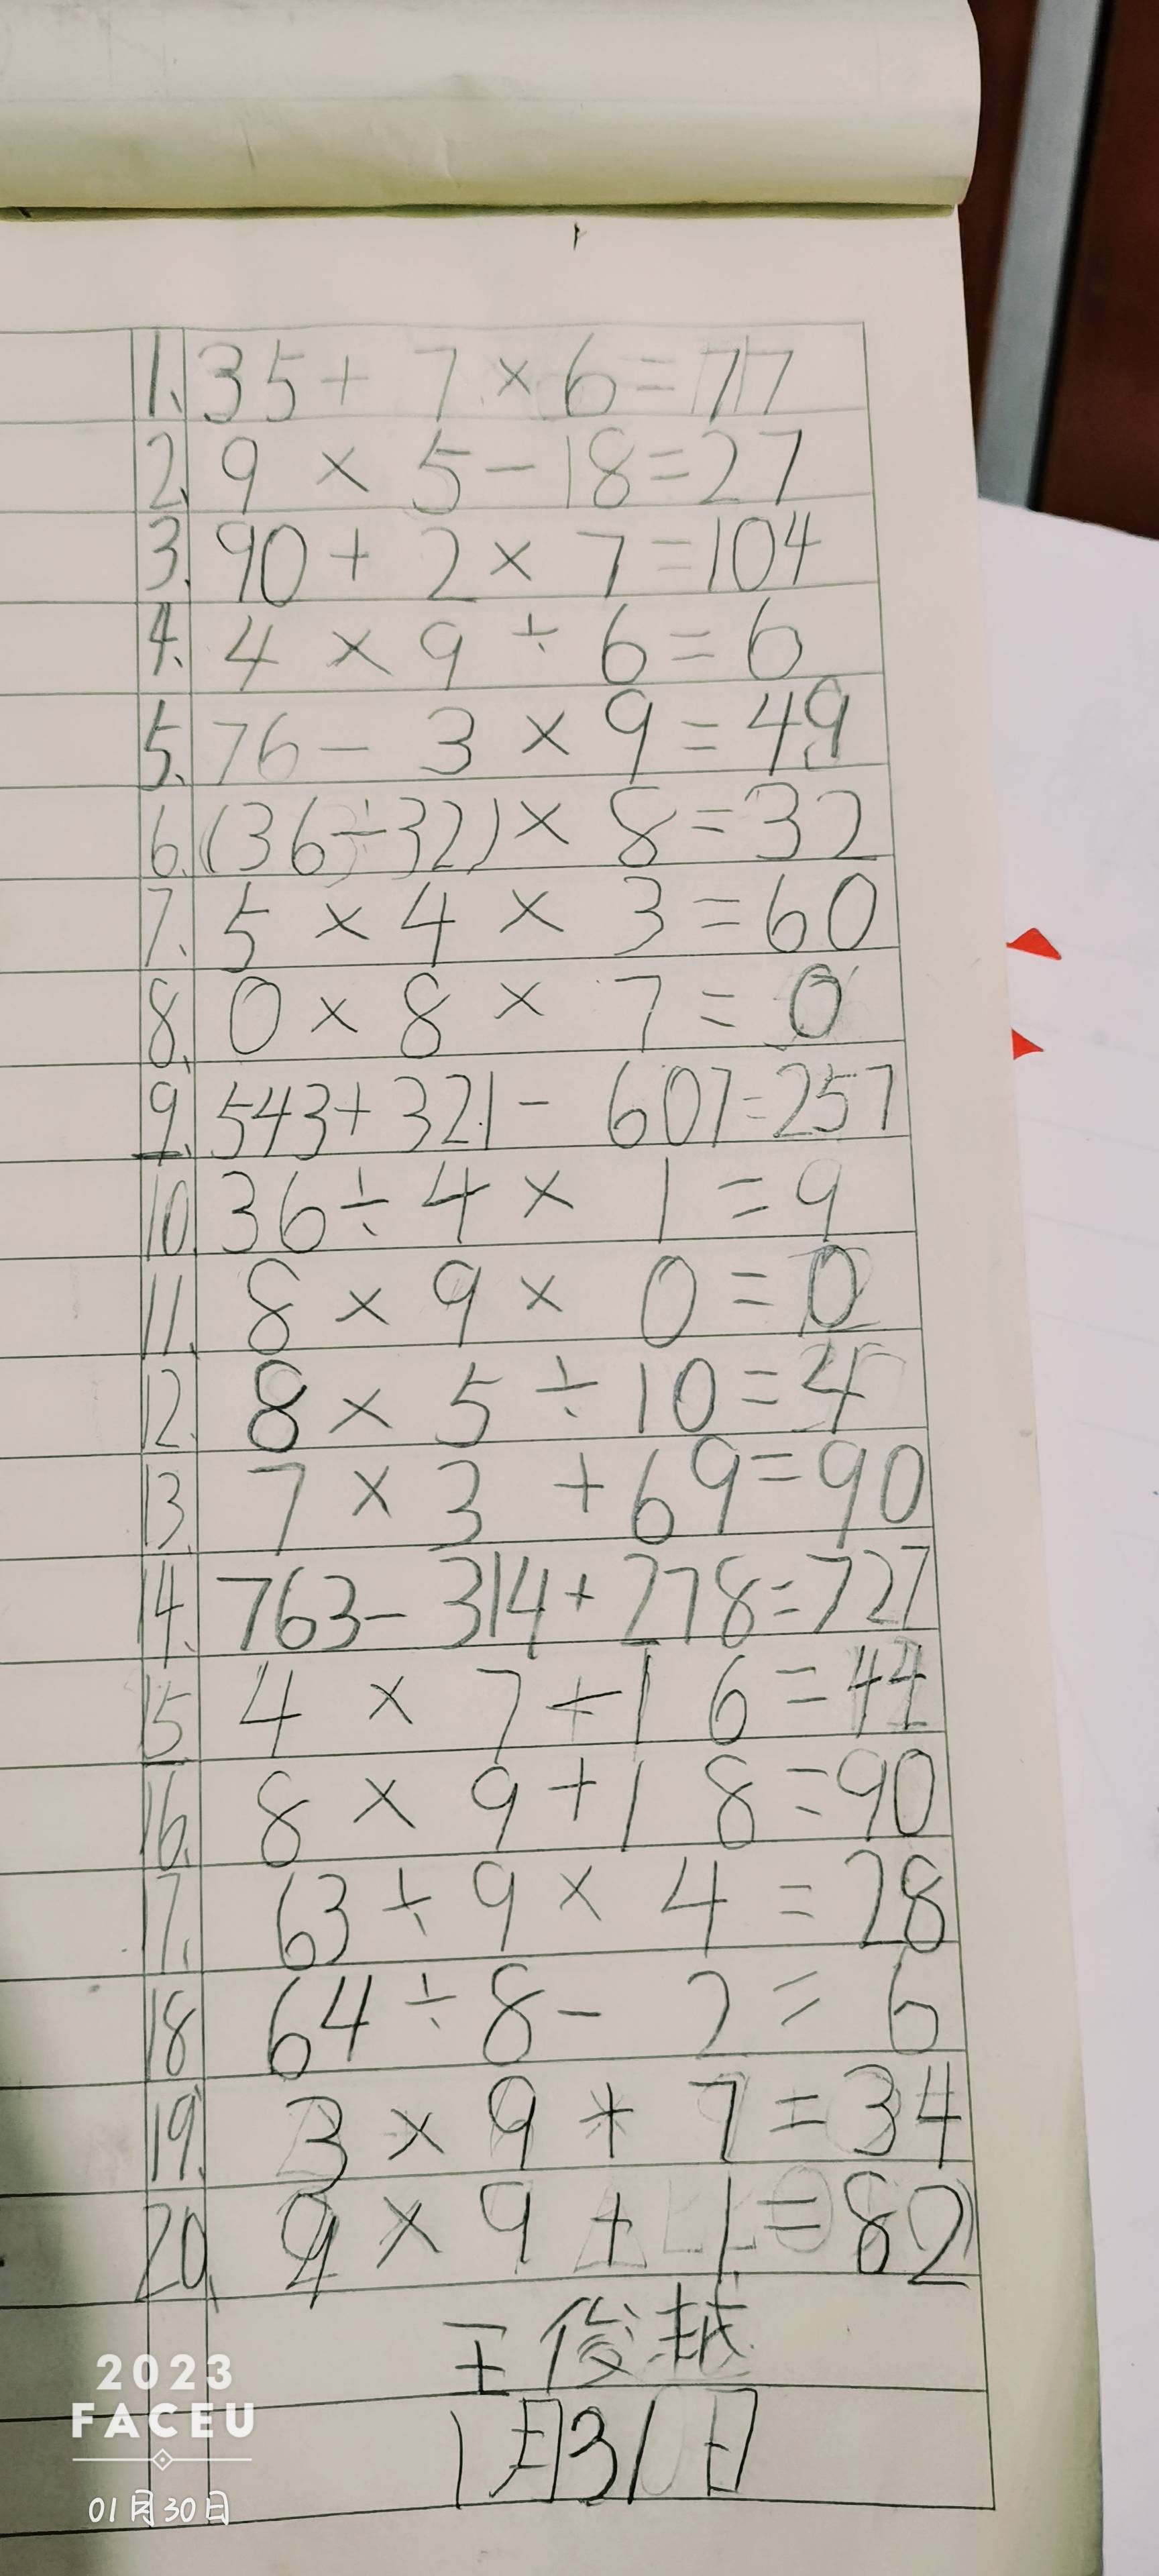 1. 35+7×6=77
2. 9×5-18=27
3. 90+2×7=104
4. 4×9÷6=6
5. 76-3×9=49
6. (36÷32)×8=32
7. 5×4×3=60
8. 0×8×7=0
9. 543+321-607=257
10. 36÷4×1=9
11. 8×9×0=0
12. 8×5÷10=4
13. 7×3+69=90
14. 763-314+278=727
15 4×7+16=44
16. 8×9+18=90
17. 63÷9×4=28
18 64÷8-2=6
19. 3×9+7=34
20. 9×9+1=82
王俊越
1月31日
2023
FACEU
01月30日